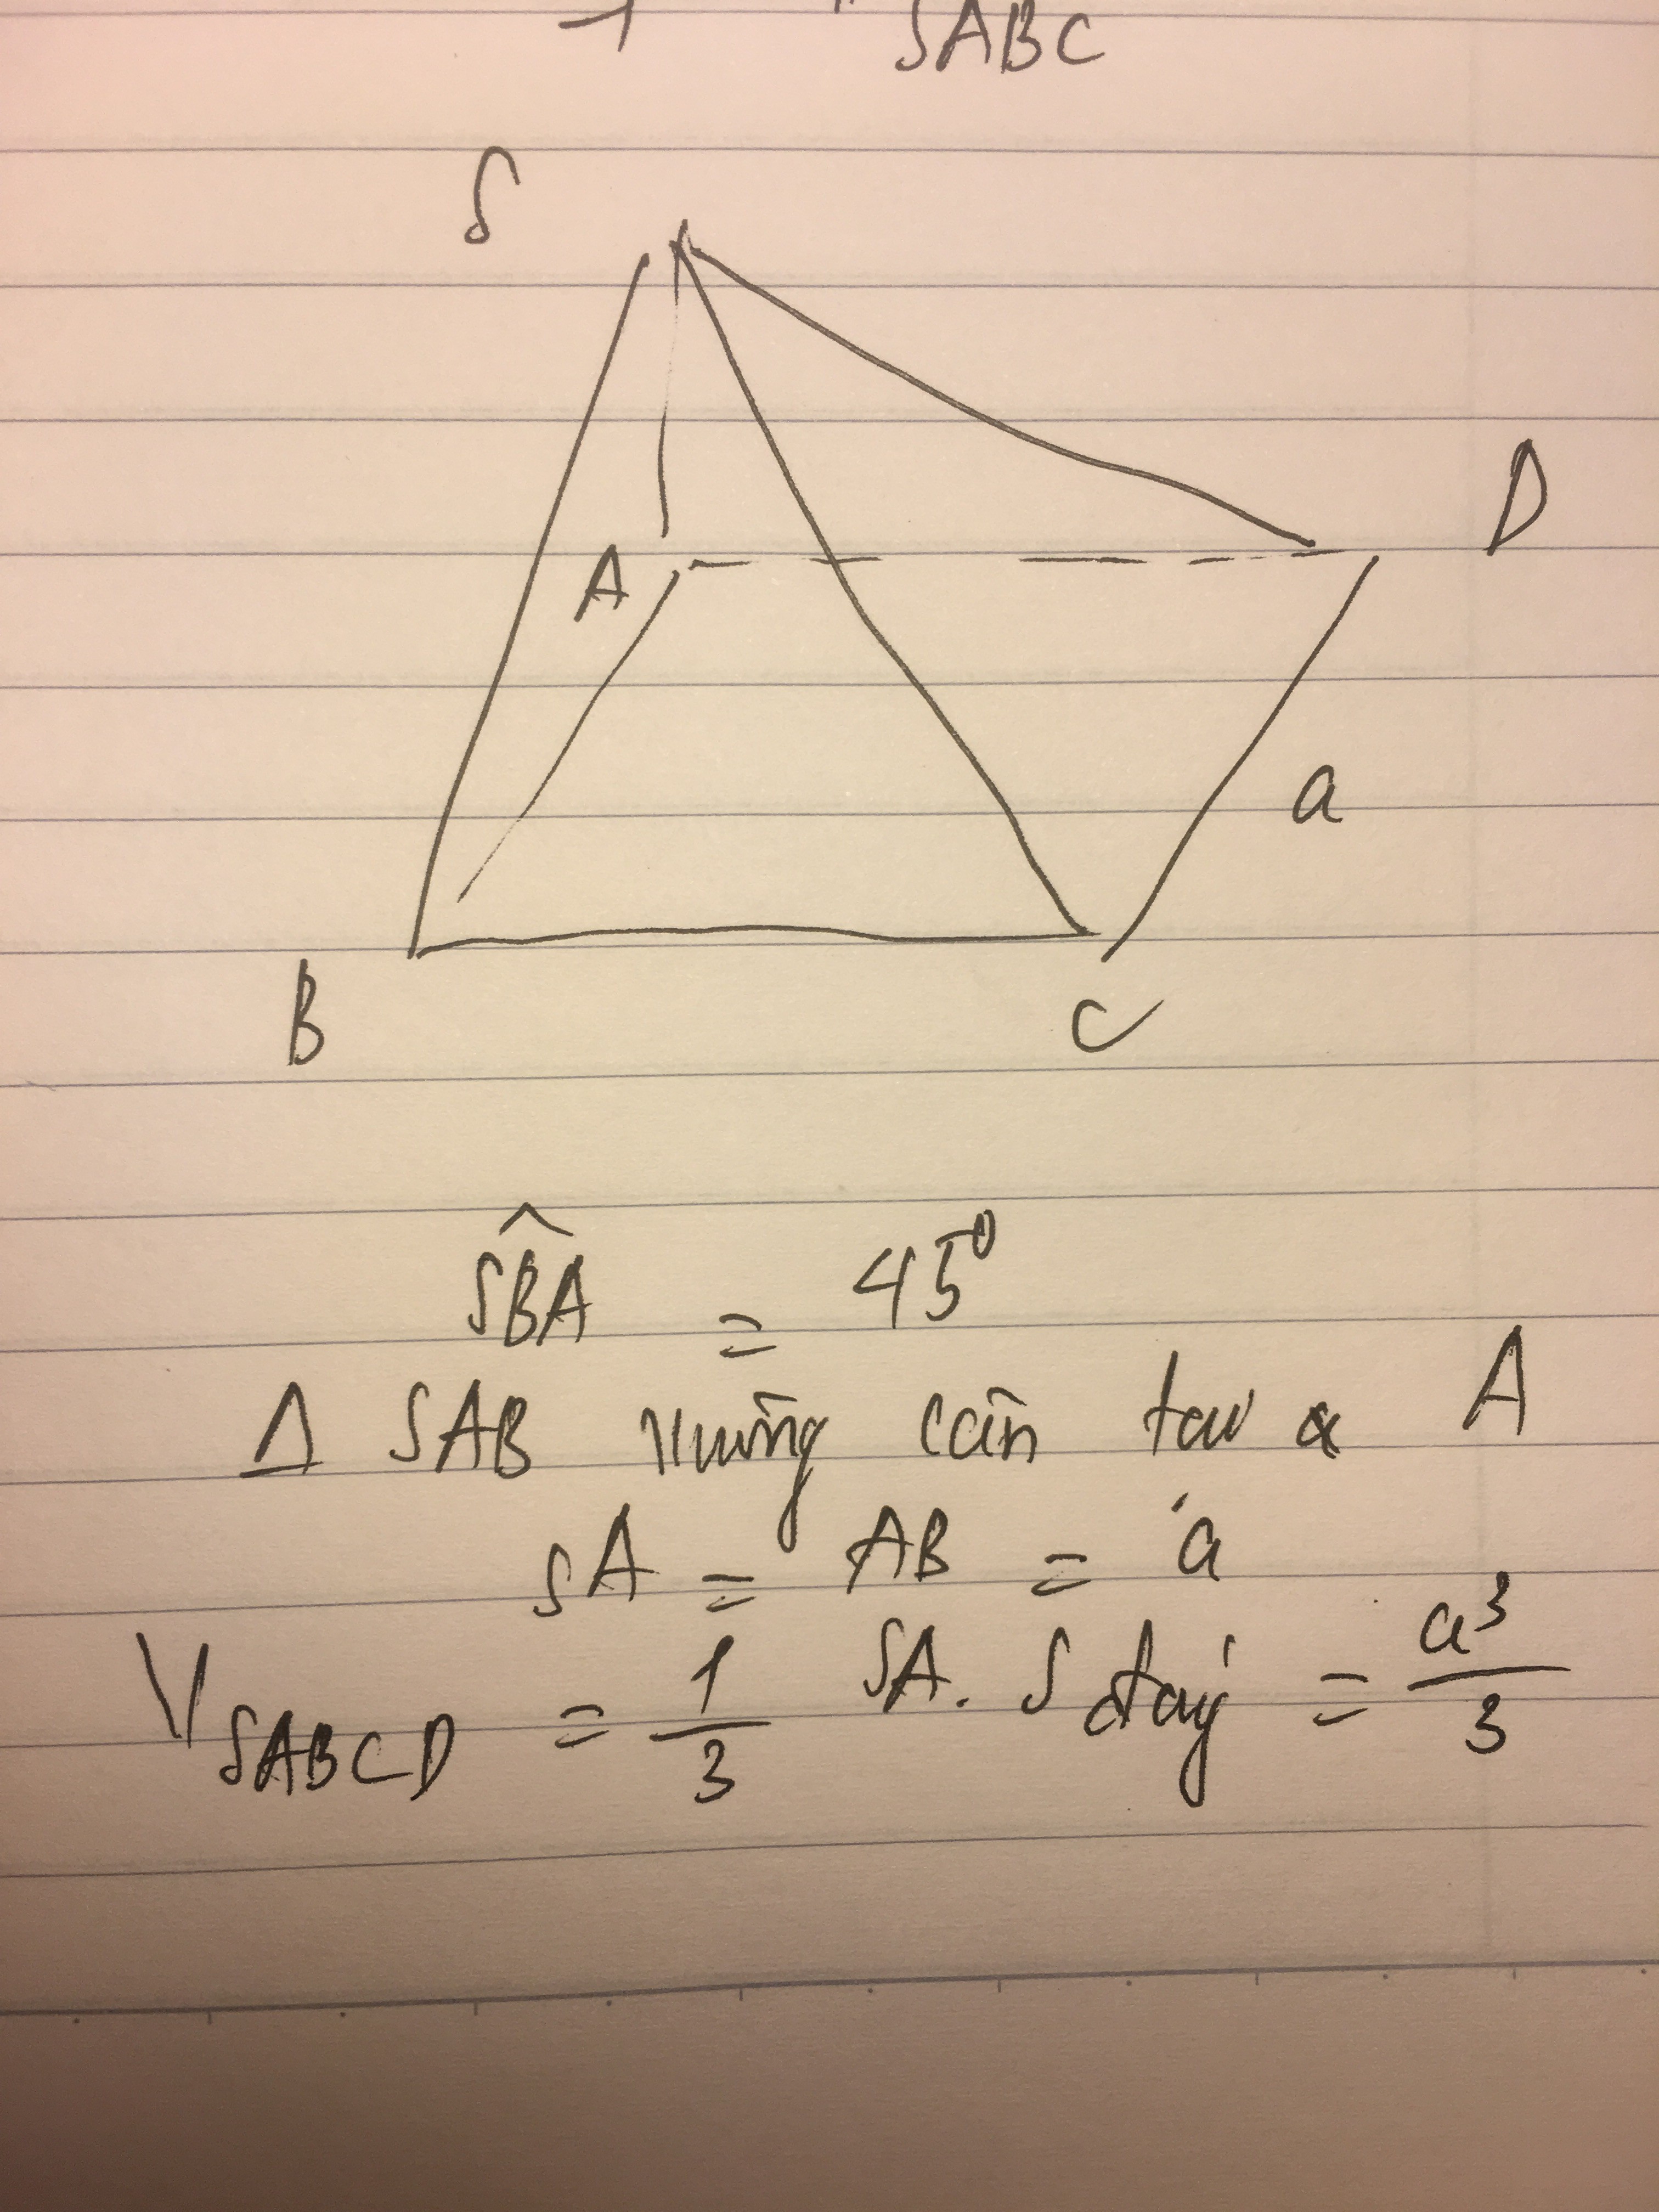 SABC
S
A
D
a
B
C
SBA = 45⁰
Δ SAB vuông cân tại A
SA = AB = a
V SABCD = 1/3 SA. S đáy = a³/3